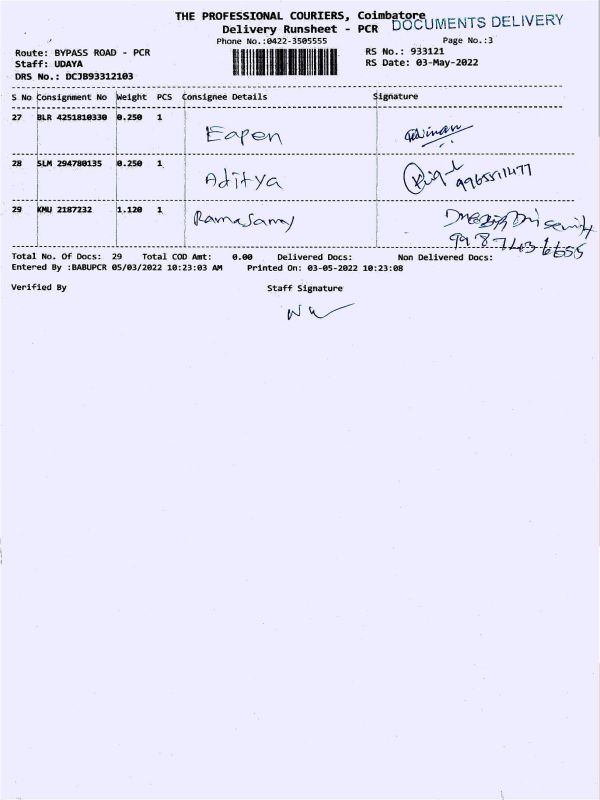 THE PROFESSIONAL COURIERS, Coimbatore
DOCUMENTS DELIVERY
Delivery Runsheet - PCR
Phone No.:0422-3505555
Page No.:3
Route: BYPASS ROAD - PCR
RS No.: 933121
Staff: UDAYA
RS Date: 03-May-2022
DRS No.: DCJB93312103
S No Consignment No Weight PCS Consignee Details Signature
27 BLR 4251810330 0.250 1 Eapen
28 SLM 294780135 0.250 1 Aditya
29 KMU 2187232 1.120 1 Ramasamy
Total No. Of Docs: 29 Total COD Amt: 0.00 Delivered Docs: Non Delivered Docs:
Entered By :BABUPCR 05/03/2022 10:23:03 AM Printed On: 03-05-2022 10:23:08
Verified By Staff Signature